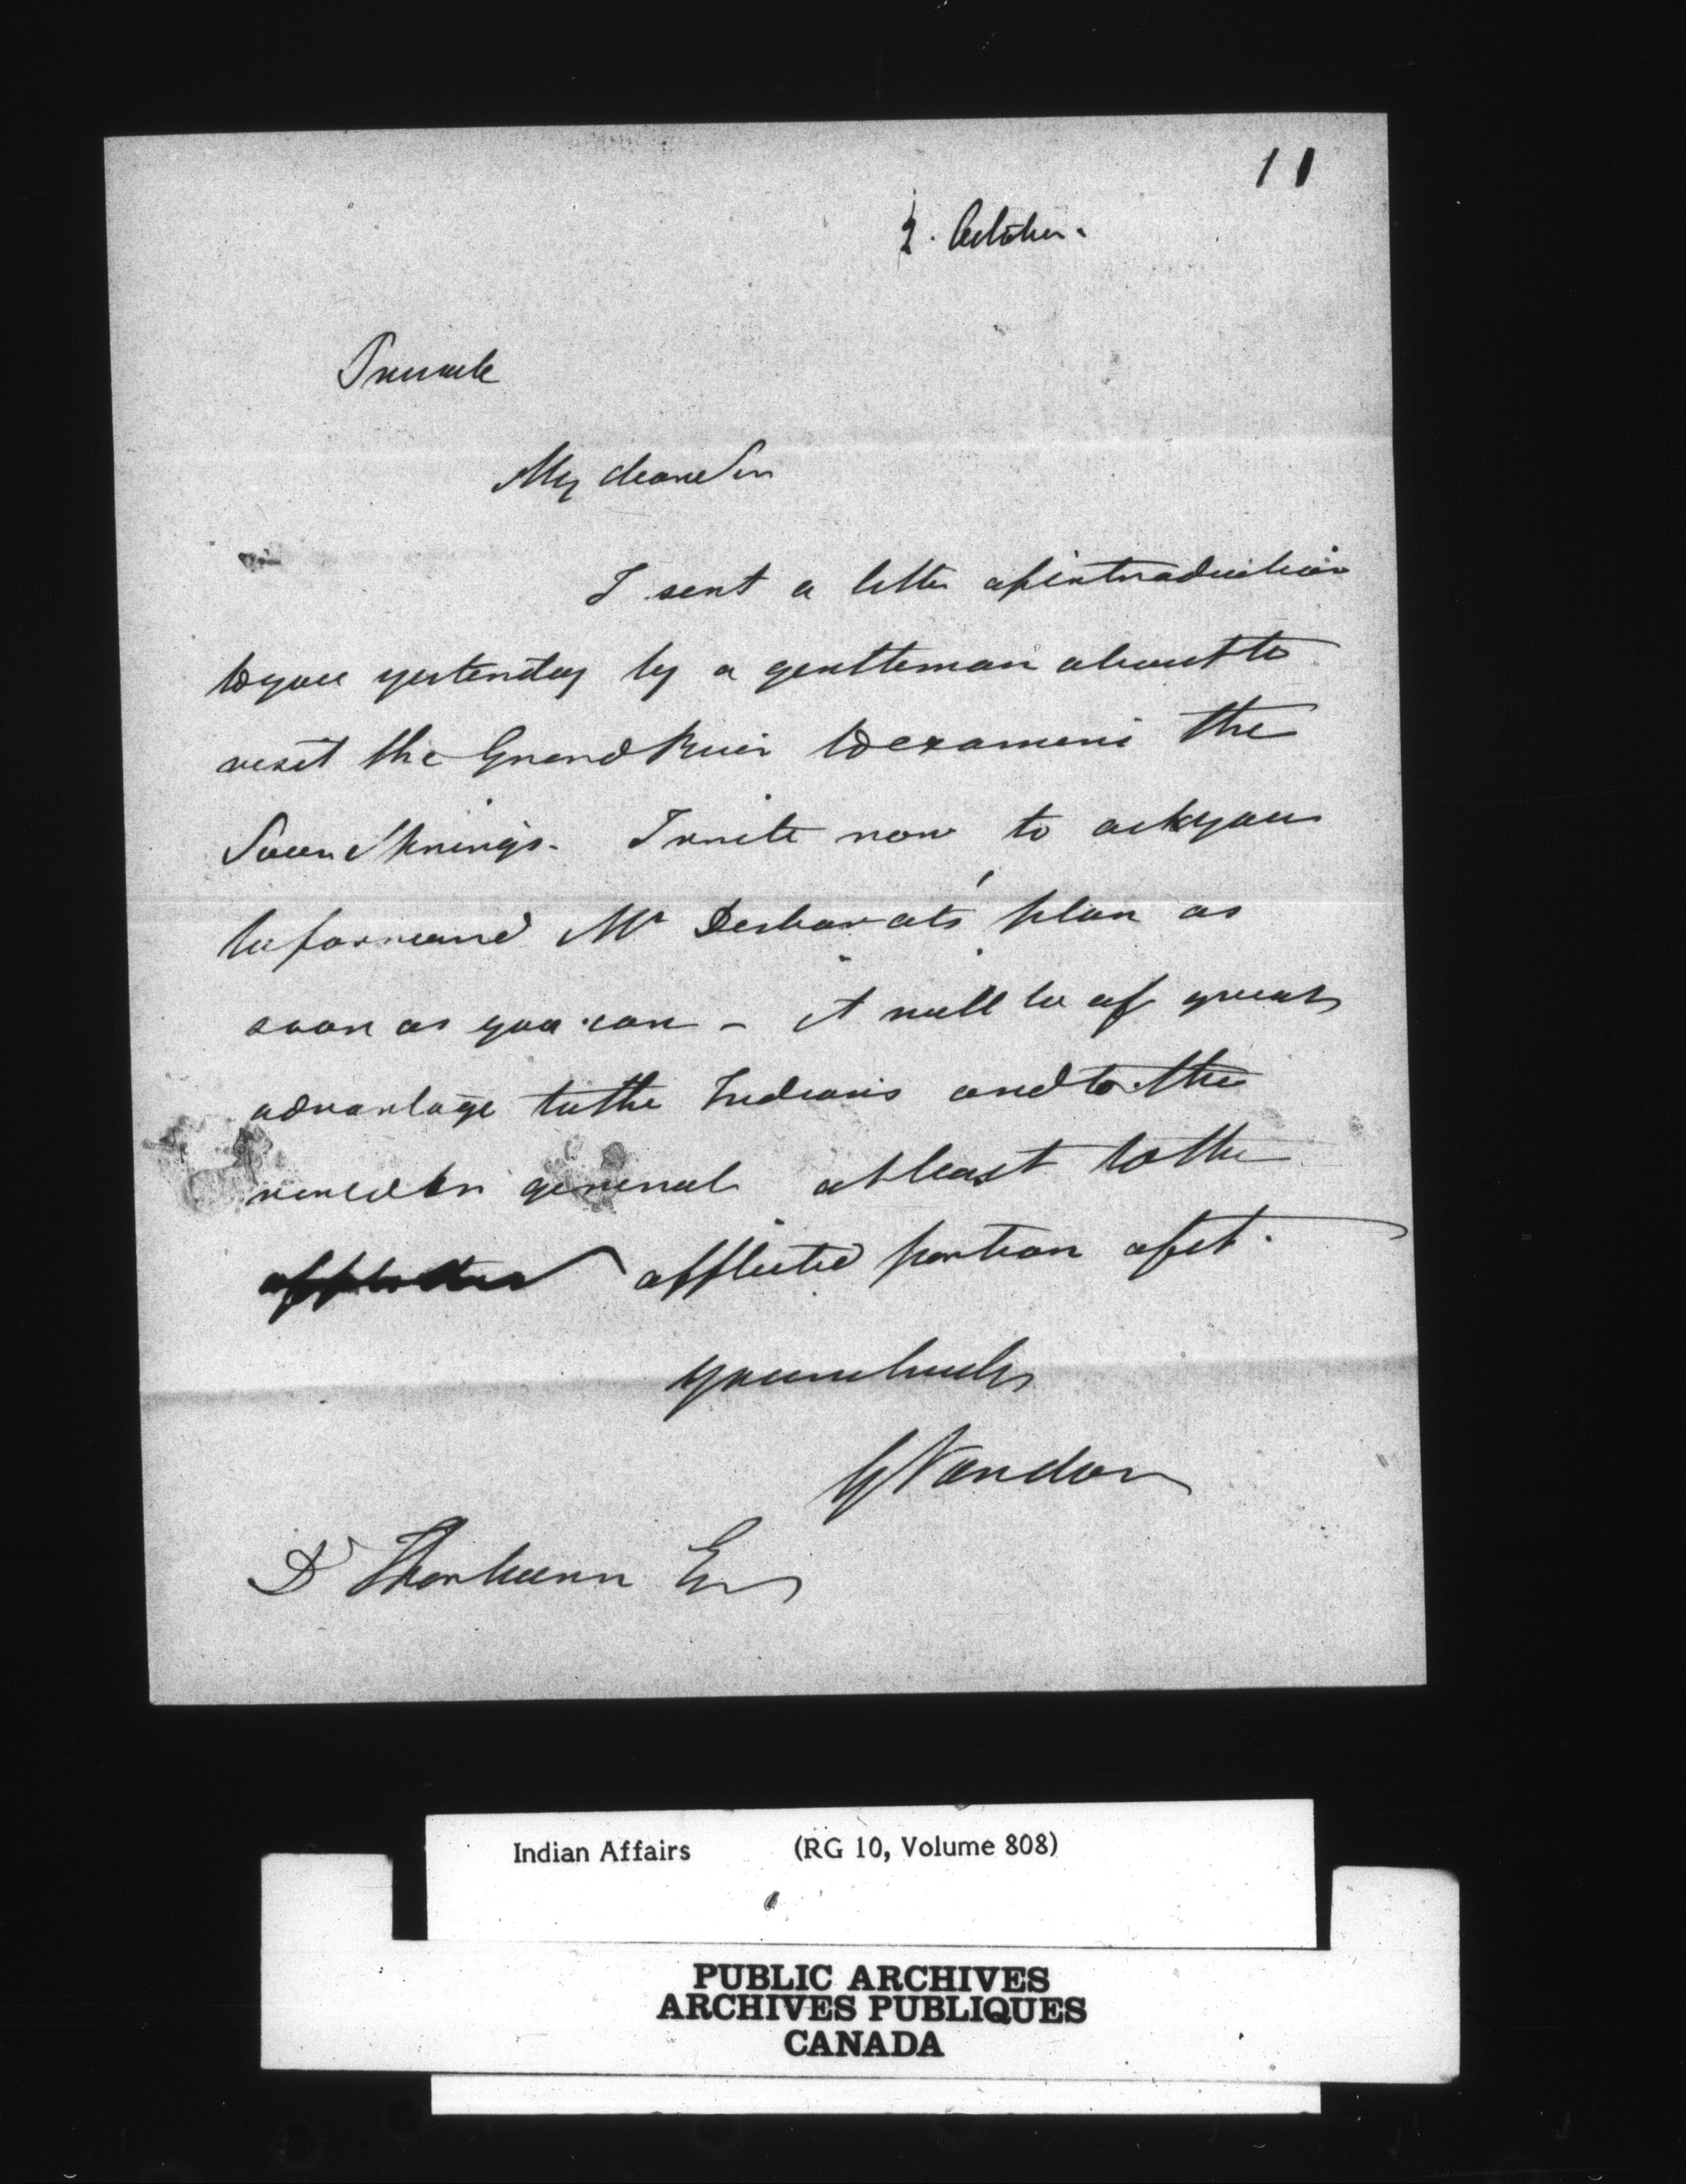 11
2. October.
Private
My dear Sir
I sent a letter of introduction
to you yesterday by a gentleman about to
visit the Grand River to examine the
Sour Springs. I write now to ask you
to forward Mr Desbarats' plan as
soon as you can - it will be of great
advantage to the Indians and to the
world in general at least to the
afflicted portion of it.
yours truly
G Vardon
D Thorburn Esq
Indian Affairs (RG 10, Volume 808)
PUBLIC ARCHIVES
ARCHIVES PUBLIQUES
CANADA